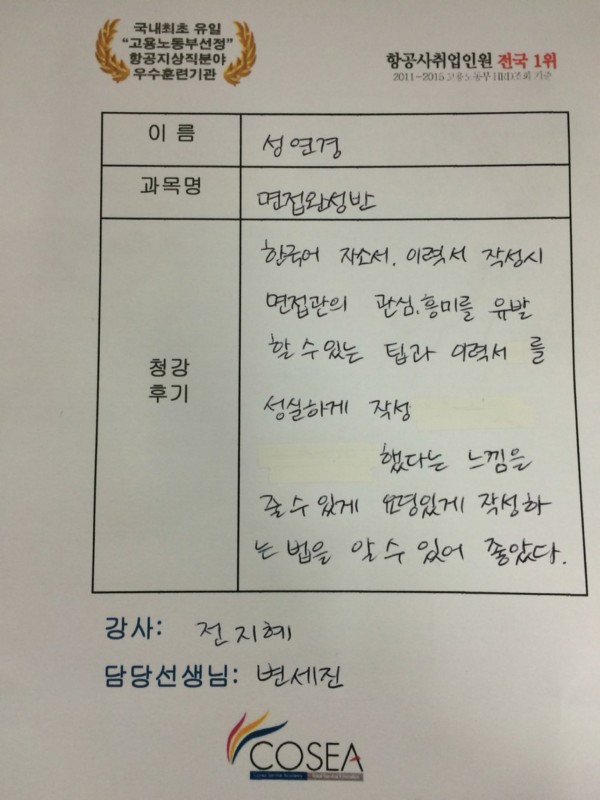 국내최초 유일
"고용노동부선정"
항공지상직분야
우수훈련기관
항공사취업인원 전국 1위
2011~2015 고용노동부 HRD조회 기준
이 름
성연경
과목명
면접완성반
청강
후기
한국어 자소서. 이력서 작성시
면접관의 관심.흥미를 유발
할 수 있는 팁과 이력서 를
성실하게 작성
했다는 느낌을
줄 수 있게 요령있게 작성하
는 법을 알 수 있어 좋았다.
강사: 전지혜
담당선생님: 변세진
COSEA